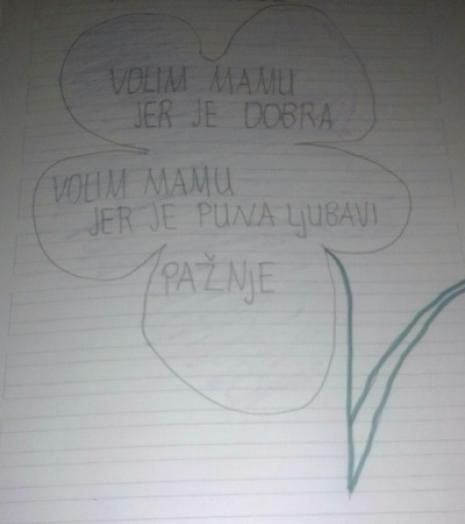 VOLIM MAMU
JER JE DOBRA
VOLIM MAMU
JER JE PUNA LJUBAVI
PAŽNJE